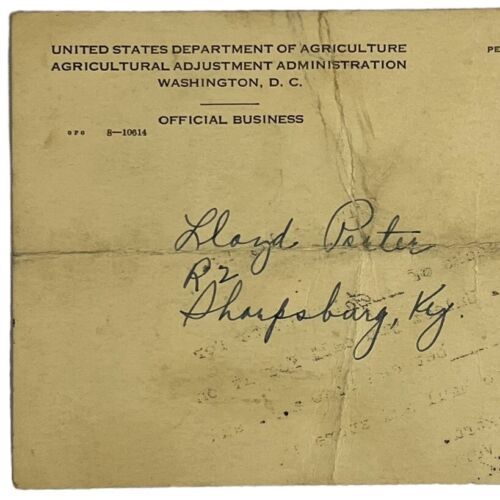 UNITED STATES DEPARTMENT OF AGRICULTURE
AGRICULTURAL ADJUSTMENT ADMINISTRATION
WASHINGTON, D. C.
OFFICIAL BUSINESS
GPO 8—10614
PE
Lloyd Porter
R2
Sharpsburg, Ky.